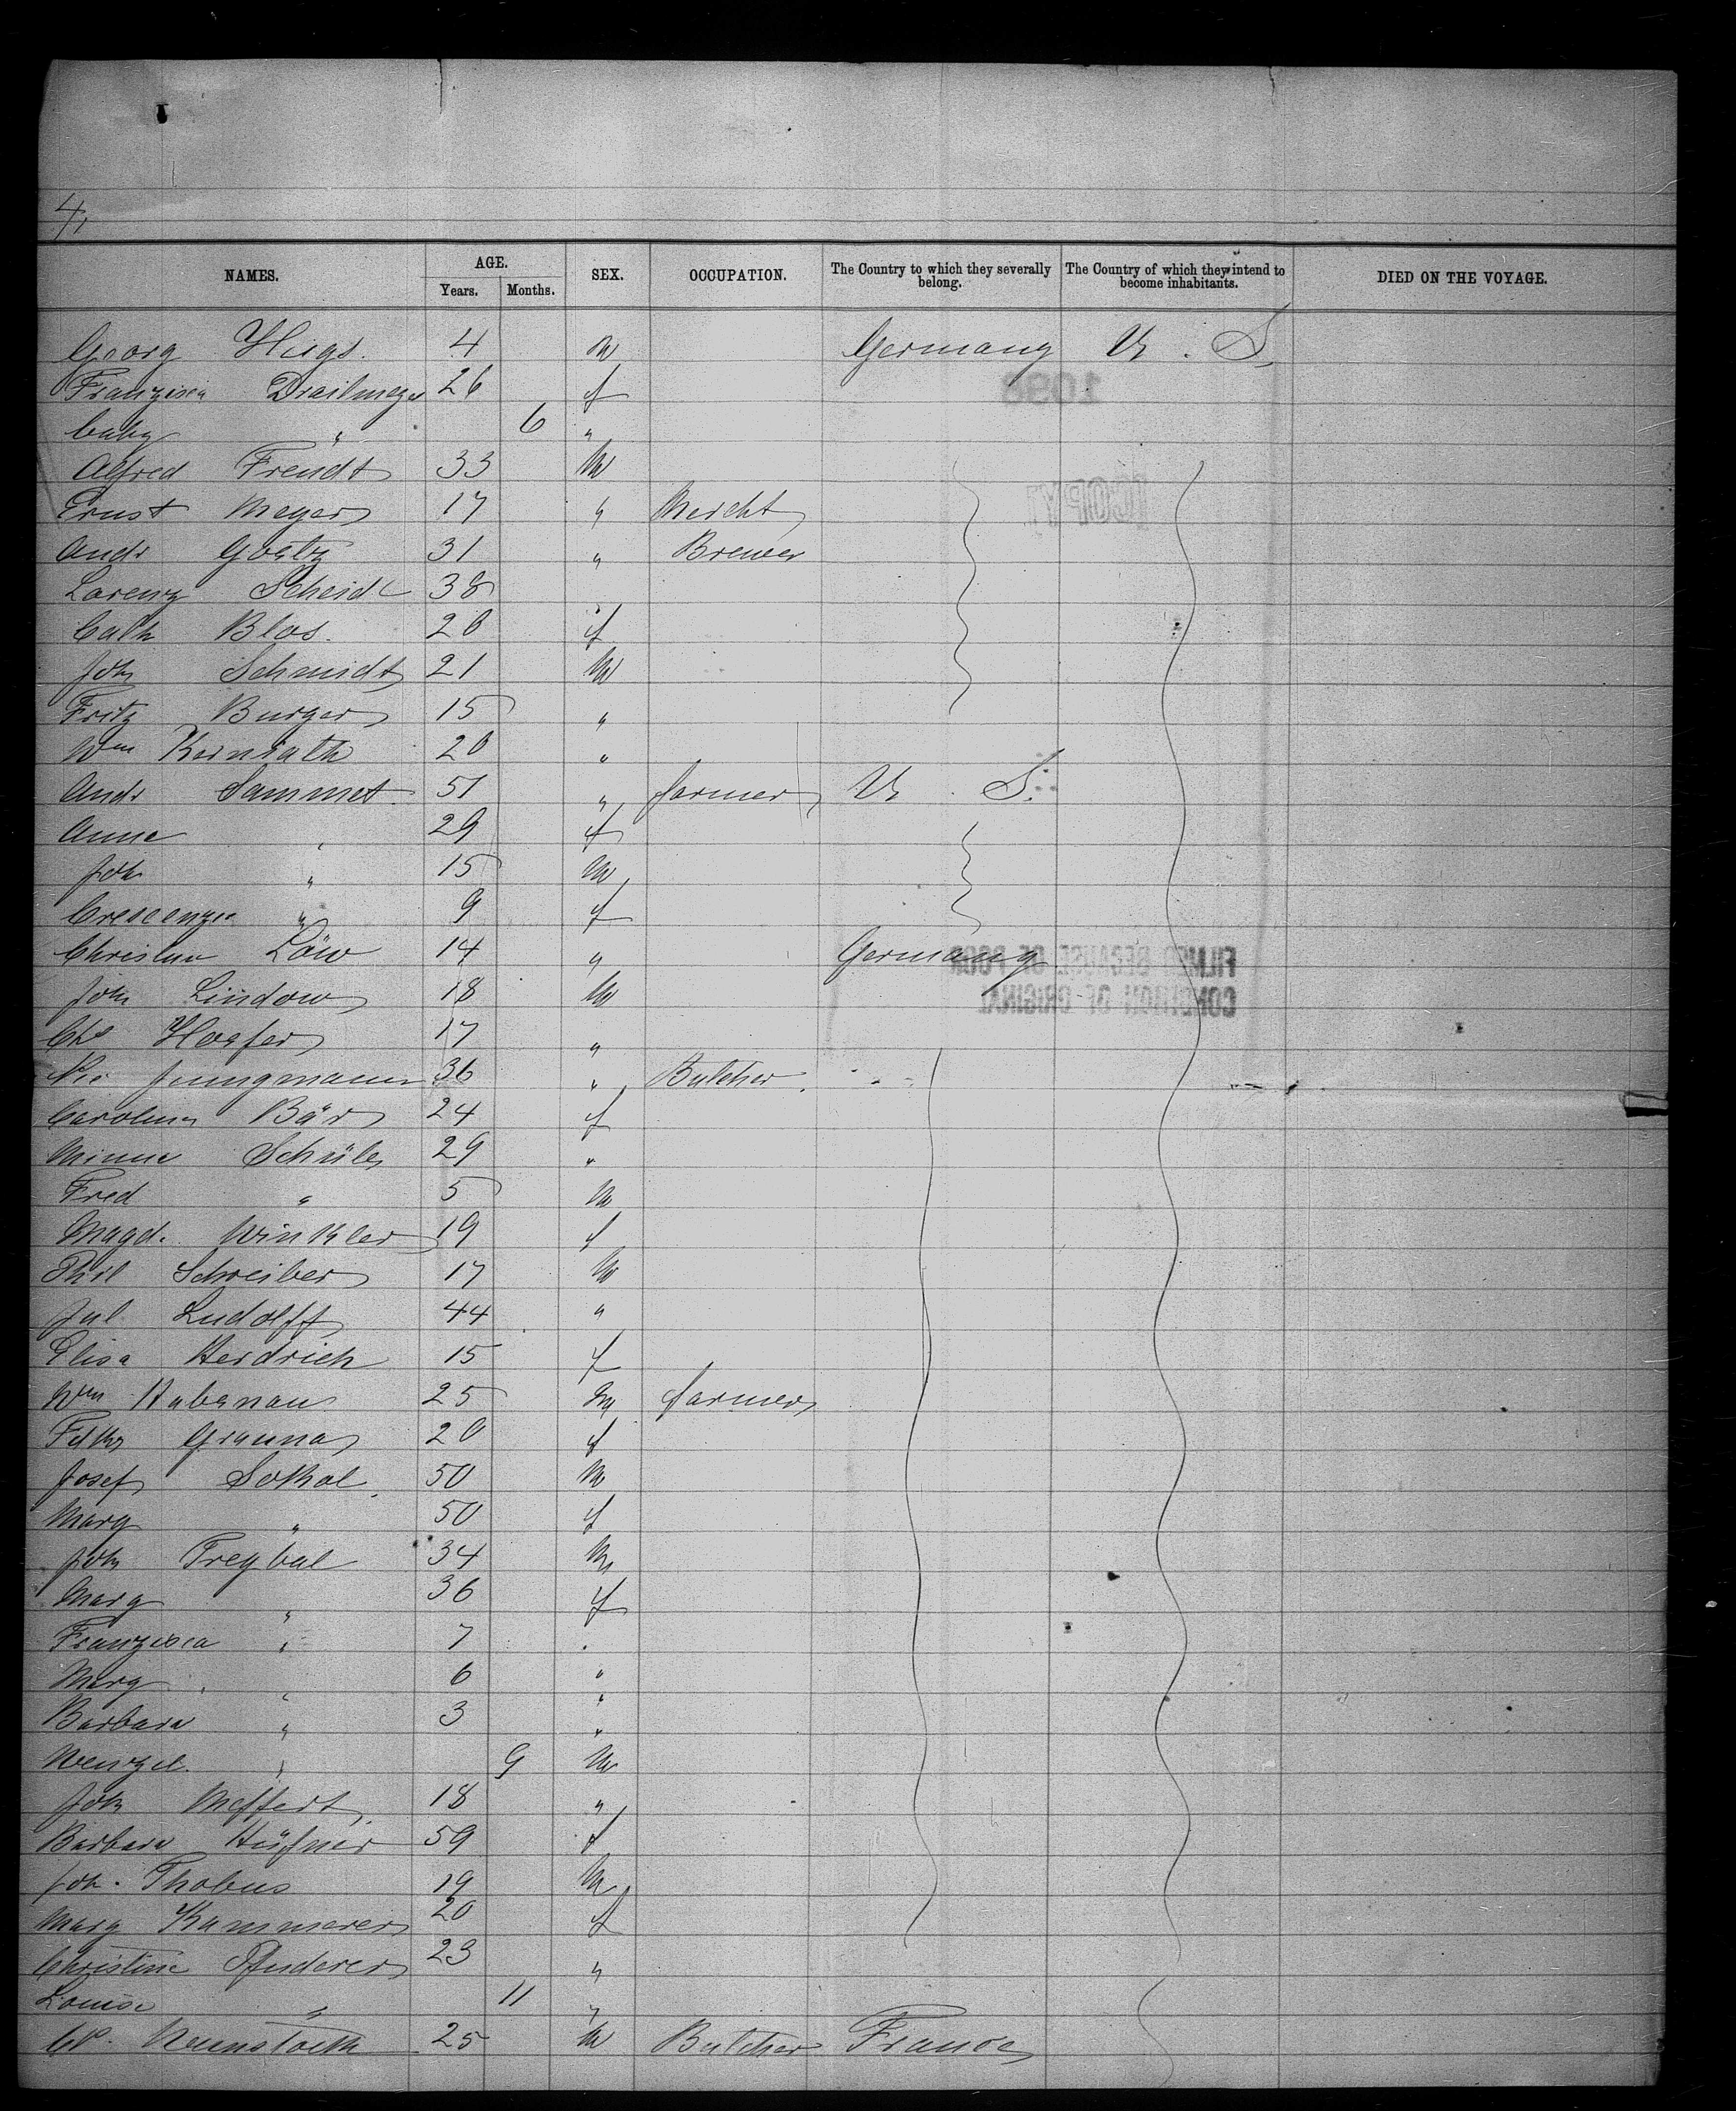 4,
NAMES. AGE. SEX. OCCUPATION. The Country to which they severally belong. The Country of which they intend to become inhabitants. DIED ON THE VOYAGE.
Years. Months.
Georg Hugs. 4 m Germany U. S.
Franzisca Drailmeyer 26 f
baby " 6 "
Alfred Frendt 33 M
Ernst Meyer 17 " Mercht
Andr Goetz 31 " Brewer
Lorenz Scheidt 38
Cath Blos. 20 f
Joh Schmidt 21 M
Fritz Burger 15 "
Wm Keinrath 20 "
Andr Sammet 51 " farmer U. S.
Anna " 29 f
Joh " 15 M
Crescenzia " 9 f
Christine Löw 14 " Germany
Joh Lindow 18 M
Chs Hoefer 17 "
Nic Jungmann 36 " Butcher
Caroline Bär 24 f
Minna Schüle 29 "
Fred " 5 M
Magd. Winkler 19 f
Phil Schreiber 17 M
Jul Ludolff 44 "
Elisa Herdrich 15 f
Wm Habenau 25 M farmer
Grauna 20 f
Josef Sokol 50 M
Marg " 50 f
Joh Treybal 34 M
Marg " 36 f
Franzisca " 7 "
Marg " 6 "
Barbara " 3 "
Wenzel " 9 M
Joh Meffert 18 "
Barbara Hüfner 59 f
Joh. Thobus 19 M
Marg Kammerer 20 f
Christine Pfuderer 23 "
Louise " 11 "
25 M Butcher France
1098
[COPY]
FILMED BECAUSE OF POOR
CONDITION OF ORIGINAL